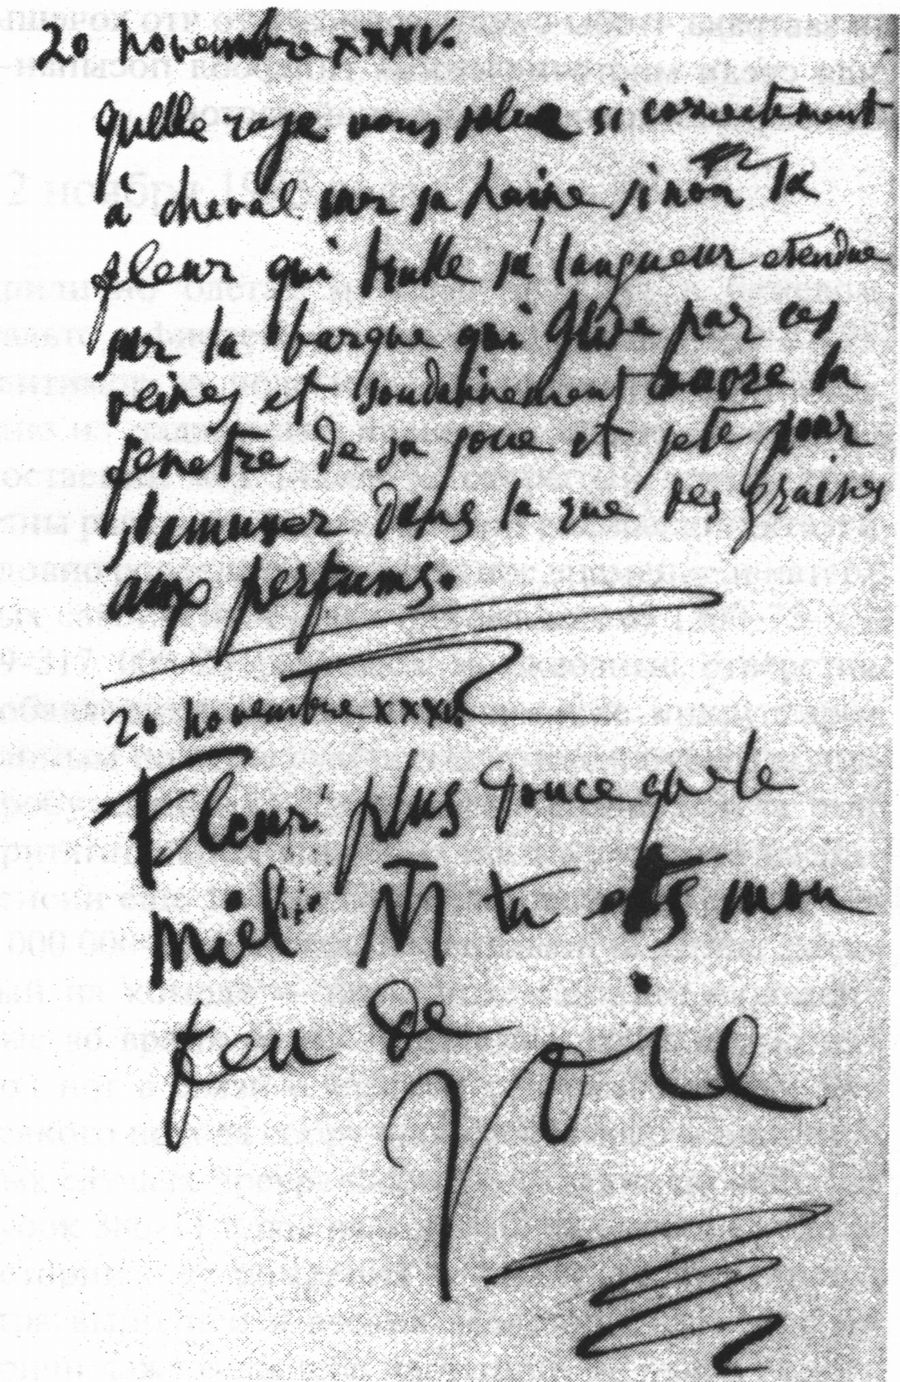 20 novembre XXXV.
quelle rage vous salue si correctement
à cheval sur sa haine sinon la
fleur qui brulle sa langueur etendue
sur la barque qui glise par ces
veines et soudainement ouvre la
fenetre de sa joue et jete pour
s'amuser dans la rue des graines
aux perfums.
20 novembre XXXV.
Fleur plus douce que le
miel MT tu ets mon
feu de
joie